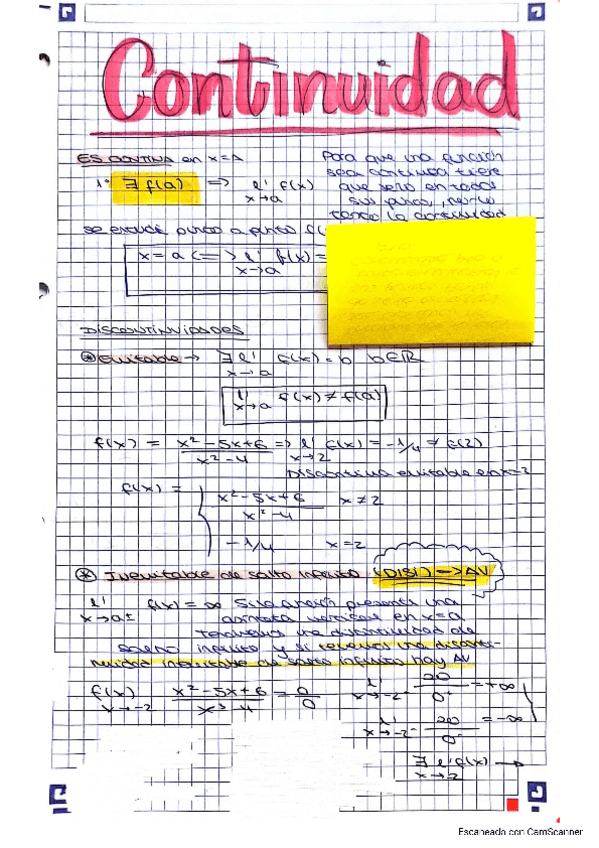 Continuidad
ES CONTINUA en x=a
Para que una función
sea continua tiene
1º ∃ f(a) => lí f(x)
x→a
que serlo en todos
sus puntos, por lo
tanto la continuidad
se estudia punto a punto f(
x = a <=> lí f(x) =
x→a
DISCONTINUIDADES
* Evitable → ∃ lí f(x) = b b∈ℝ
x→a
lí f(x) ≠ f(a)
x→a
f(x) = x²-5x+6 / x²-4 => lí f(x) = -1/4 ≠ f(2)
x→2
Discontinua evitable en x=2
f(x) = { x²-5x+6 / x²-4 x≠2
-1/4 x=2
* Inevitable de salto infinito (DISI) → AV
lí f(x) = ∞ Si la función presenta una
x→a± asíntota vertical en x=a
tenemos una discontinuidad de
salto infinito y si tenemos una disconti-
nuidad inevitable de salto infinito hay AV
f(x) x²-5x+6 / x²-4 = 0/0
x→-2
lí 20/0⁺ = +∞
x→-2⁻
lí 20/0⁻ = -∞
x→-2⁻
∃ lí f(x) →
x→2
Escaneado con CamScanner